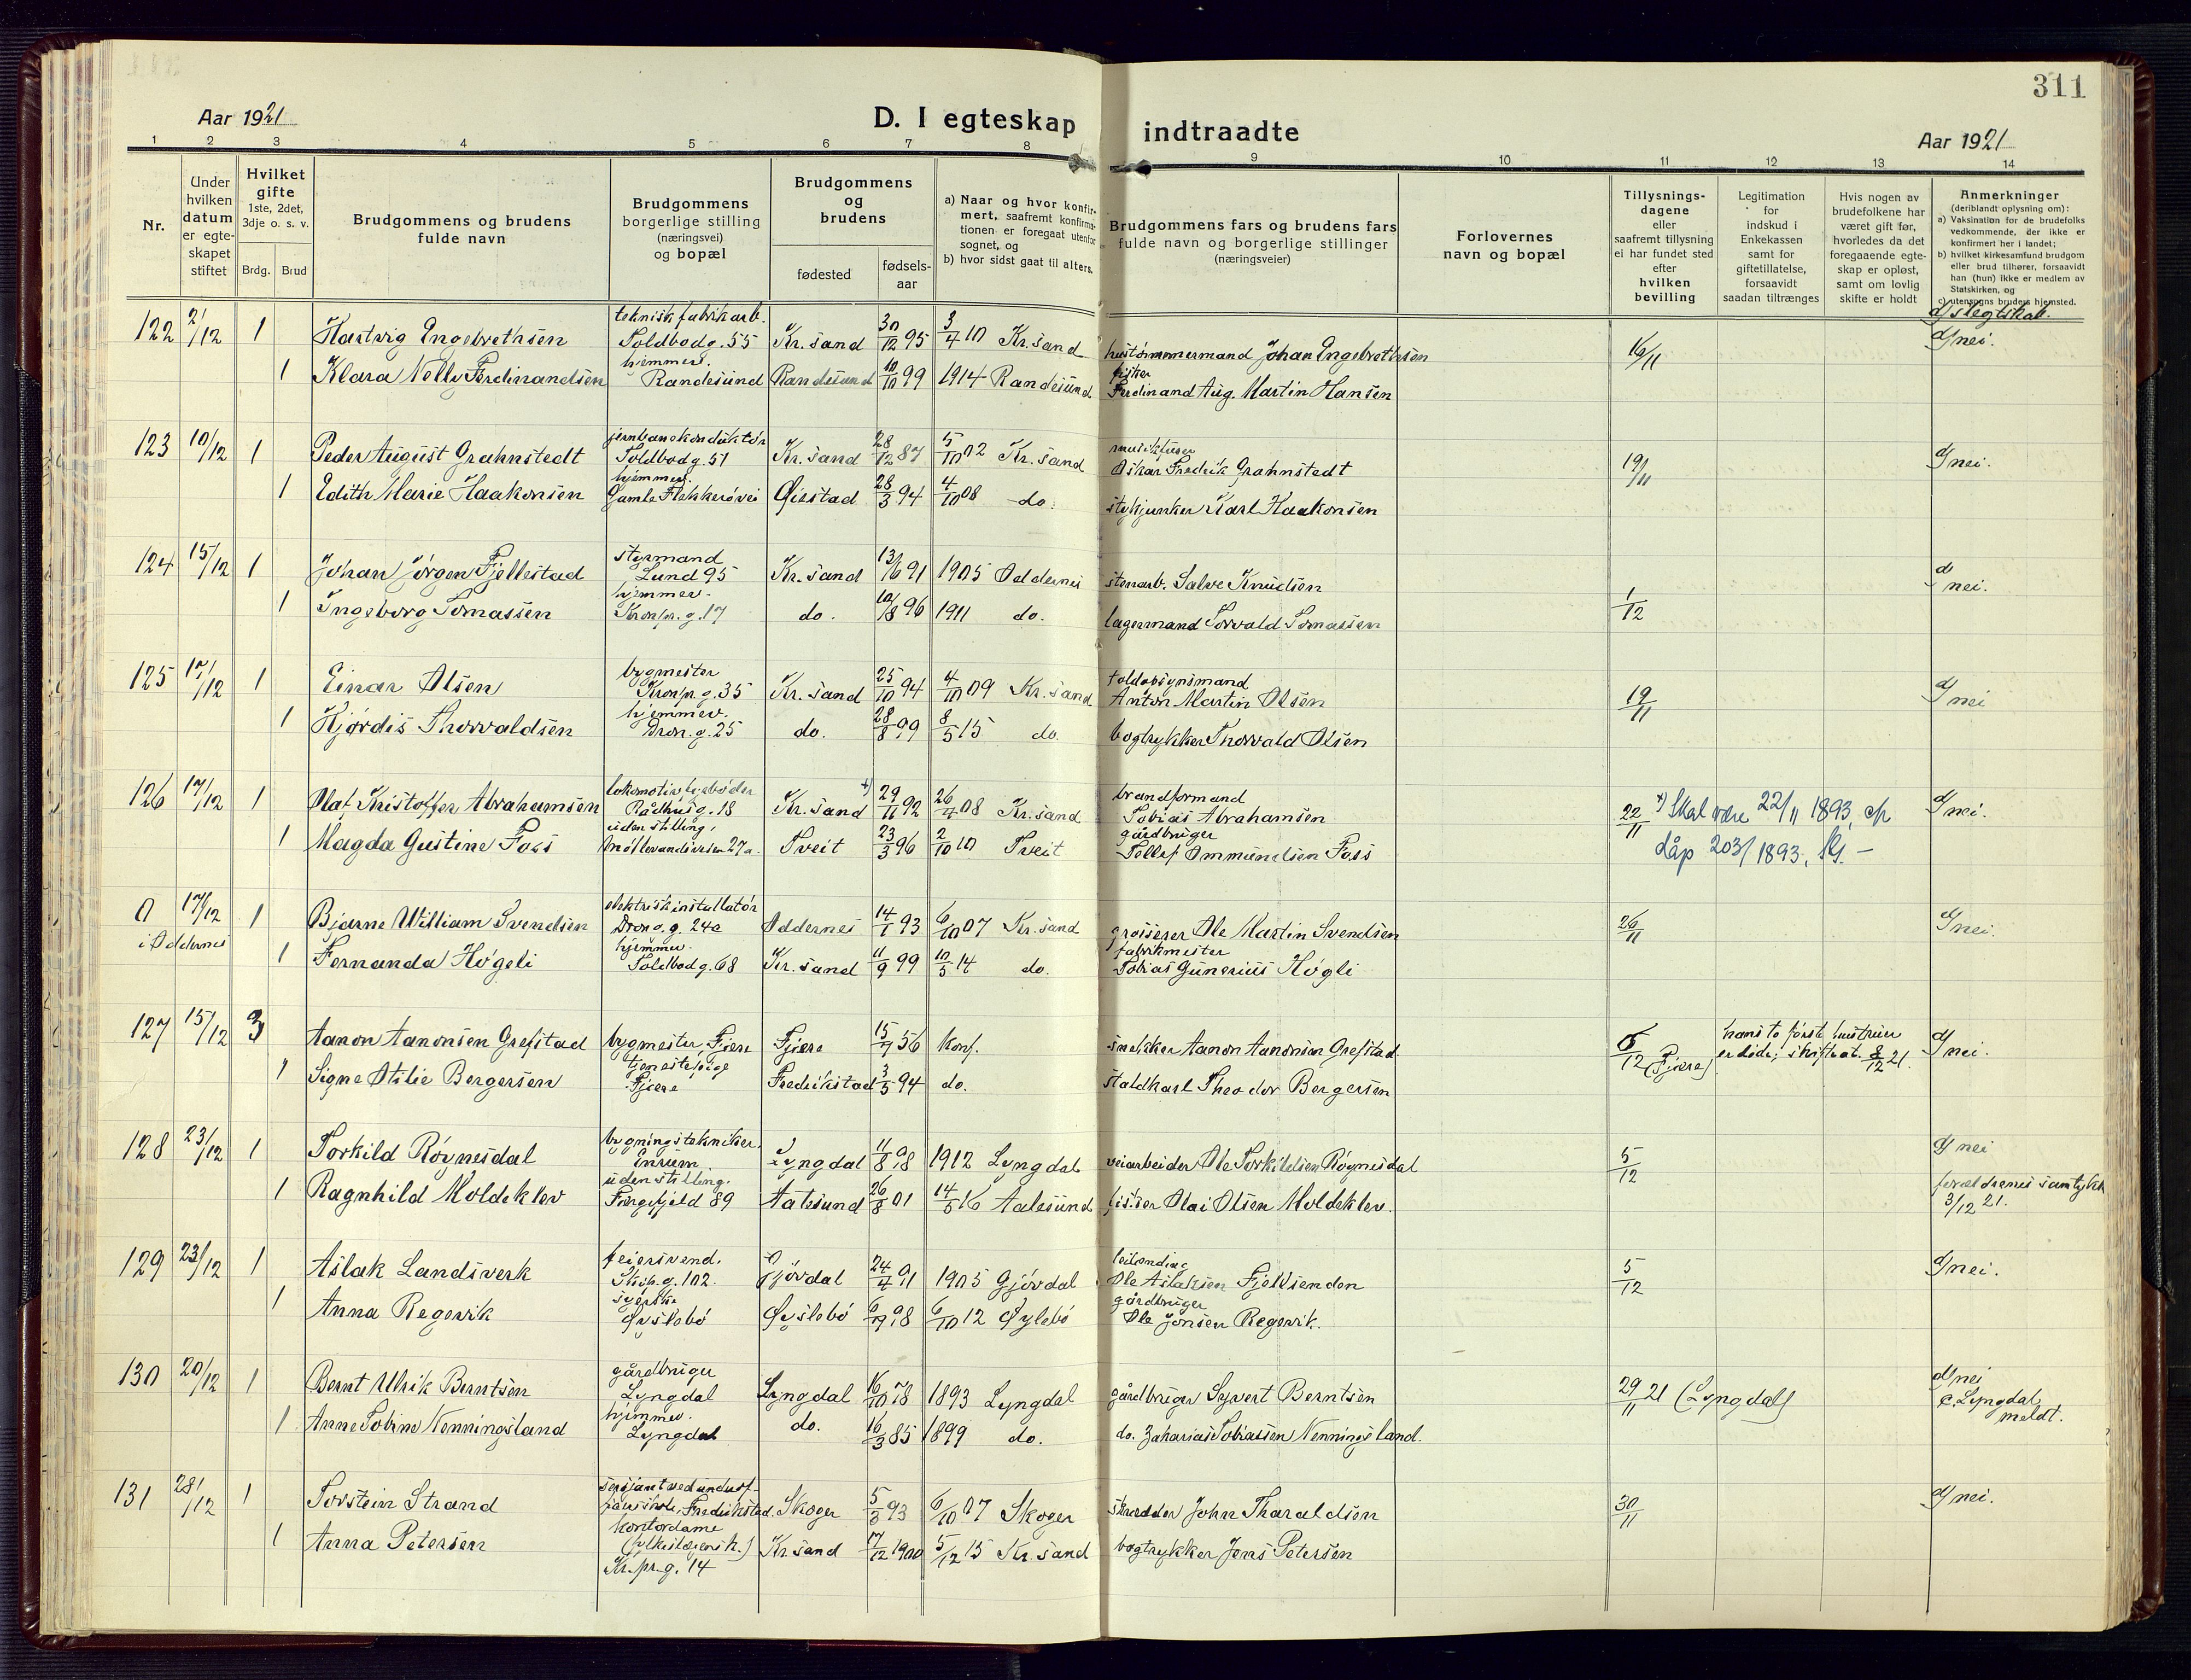 311
Aar 1921
D. I egteskap indtraadte
Aar 1921
1 2 3 4 5 6 7 8 9 10 11 12 13 14
Nr.
Under hvilken datum er egte-skapet stiftet
Hvilket gifte 1ste, 2det, 3dje o. s. v.
Brdg. Brud
Brudgommens og brudens fulde navn
Brudgommens borgerlige stilling (næringsvei) og bopæl
Brudgommens og brudens
fødested
fødsels-aar
a) Naar og hvor konfir-mert, saafremt konfirma-tionen er foregaat utenfor sognet, og
b) hvor sidst gaat til alters.
Brudgommens fars og brudens fars fulde navn og borgerlige stillinger (næringsveier)
Forlovernes navn og bopæl
Tillysnings-dagene eller saafremt tillysning ei har fundet sted efter hvilken bevilling
Legitimation for indskud i Enkekassen samt for giftetillatelse, forsaavidt saadan tiltrænges
Hvis nogen av brudefolkene har været gift før, hvorledes da det foregaaende egte-skap er opløst, samt om lovlig skifte er holdt
Anmerkninger (deriblandt oplysning om):
a) Vaksination for de brudefolks vedkommende, der ikke er konfirmert her i landet;
b) hvilket kirkesamfund brudgom eller brud tilhører, forsaavidt han (hun) ikke er medlem av Statskirken, og
c) utensogns bruders hjemsted.
d) slegtskab.
122 2/12 1 Hartvig Engebrethsen teknisk fabrikarb. Toldbodg. 55 Kr.sand 30/12 95 3/4 10 Kr.sand hustømmermand Johan Engebrethsen 16/11 d) nei.
1 Klara Nelly Ferdinandsen hjemmev. Randesund Randesund 10/10 99 1914 Randesund fisker Ferdinand Aug. Martin Hansen
123 10/12 1 Peder August Grahnstedt jernbanekonduktør Toldbodg. 51 Kr.sand 28/12 87 5/10 02 Kr.sand Oskar Fredrik Grahnstedt 19/11 d) nei.
1 Edith Marie Haakonsen hjemmev. Gamle Flekkerøvei Øiestad 28/3 94 4/10 08 do. stykjunker Karl Haakonsen
124 15/12 1 Johan Jørgen Fjellestad styrmand Lund 95 Kr.sand 13/6 91 1905 Oddernes stenarb. Salve Knudsen 1/12 d) nei.
1 Ingeborg Tomassen hjemmev. Kronpr.g. 17 do. 10/8 96 1911 do. lagermand Torvald Tomassen
125 17/12 1 Einar Olsen bygmester Kronpr.g. 35 Kr.sand 25/10 94 4/10 09 Kr.sand toldopsynsmand Anton Martin Olsen 19/11 d) nei
1 Hjørdis Thorvaldsen hjemmev. Dron.g. 25 do. 28/8 99 8/5 15 do. bogtrykker Thorvald Olsen
126 17/12 1 Olaf Kristoffer Abrahamsen lokomotivfyrbøder Rådhusg. 18 Kr.sand x) 29/11 92 26/4 08 Kr.sand brandformand Tobias Abrahamsen 22/11 x) Skal være 22/11 1893, cfr dåp 203/1893. d) nei.
1 Magda Gustine Foss uden stilling, 27a. Tveit 23/3 96 2/10 10 Tveit gårdbruger Tellef Ommundsen Foss
0 i Oddernes 17/12 1 Bjarne William Svendsen elektrisk installatør Dron.g. 24a Oddernes 14/1 93 6/10 07 Kr.sand grosserer Ole Martin Svendsen 26/11 d) nei.
1 Fernanda Høgeli hjemmev. Toldbodg. 68 Kr.sand 11/9 99 10/5 14 do. fabrikmester Tobias Gunerius Høgli
127 15/12 3 Aanon Aanonsen Grefstad bygmester Fjære Fjære 15/7 56 konf. snekker Aanon Aanonsen Grefstad 6/12 (Fjære) hans to første hustruer er døde; skifteat. 8/12 21. d) nei.
1 Signe Otilie Bergersen tjenestepige Fjære Fredrikstad 3/5 94 do. staldkarl Theodor Bergersen
128 23/12 1 Torkild Røynesdal bygningstekniker Enrum. Lyngdal 11/8 98 1912 Lyngdal veiarbeider Ole Torkildsen Røynesdal 5/12 d) nei
1 Ragnhild Moldeklev uden stilling. Færgefjeld 89 Aalesund 26/8 01 14/5 16 Aalesund fisker Olai Olsen Moldeklev. forældrenes samtykke 3/12 21.
129 23/12 1 Aslak Landsverk feiersvend. Skip.g. 102. Gjøvdal 24/4 91 1905 Gjøvdal leilending Ole Aslaksen Fjellsenden 5/12 d) nei.
1 Anna Regevik syerske Øyslebø Øyslebø 6/9 98 6/10 12 Øylebø gårdbruger Ole Jonsen Regevik.
130 20/12 1 Bernt Ulrik Berntsen gårdbruger Lyngdal Lyngdal 16/10 78 1893 Lyngdal gårdbruger Syvert Berntsen 29/11 21 (Lyngdal) d) nei c. Lyngdal, meldt.
1 Anne Tobine Nenningsland hjemmev. Lyngdal do. 16/3 85 1899 do. do. Zakarias Tobiassen Nenningsland.
131 28/12 1 Torstein Strand sersjant ved underof. Fredrikstad. Skoger 5/3 93 6/10 07 Skoger skredder Johan Tharaldsen 30/11 d) nei.
1 Anna Petersen kontordame Kr.pr.g. 14 Kr.sand 17/12 1900 5/12 15 Kr.sand bogtrykker Jens Petersen